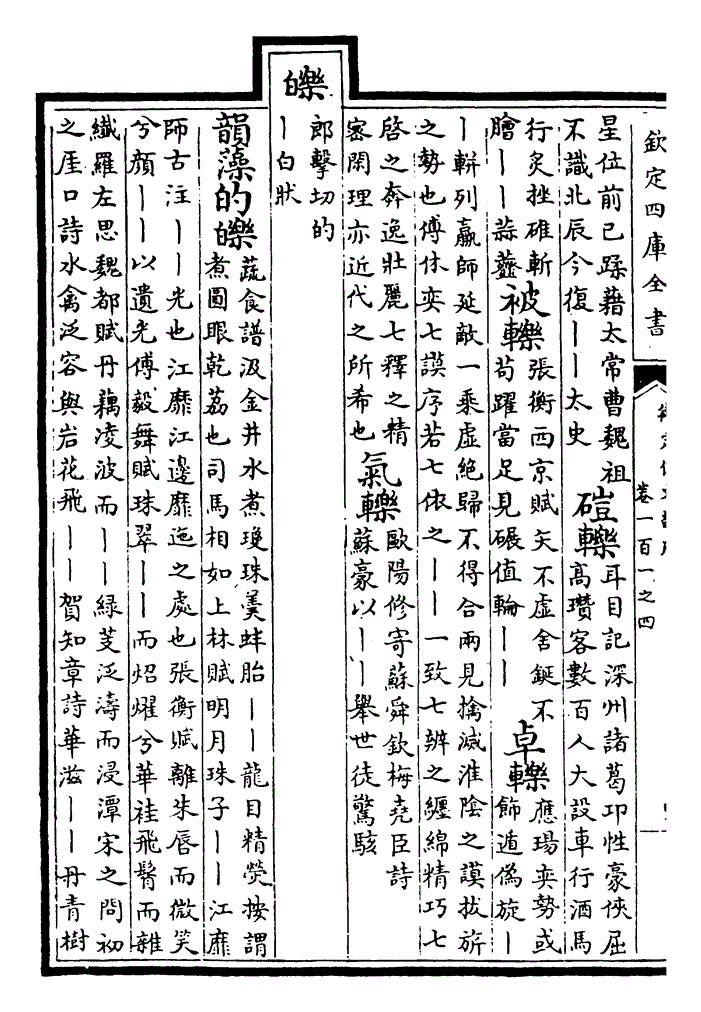 欽定四庫全書
卷一百一之四
星位前已蹂藉太常曹魏祖
不識北辰今復丨丨太史
磑轢
耳目記深州諸葛卬性豪俠屈
高瓚客數百人大設車行酒馬
行炙挫碓斬
膾丨丨蒜虀
被轢
張衡西京賦矢不虛舍鋋不
苟躍當足見碾值輪丨丨
卓轢
應瑒奕勢或
飾遁偽旋丨
丨軿列贏師延敵一乗虛絶歸不得合兩見擒滅淮陰之謨拔旂
之勢也傅休奕七謨序若七依之丨丨一致七辨之纏綿精巧七
啓之奔逸壯麗七釋之精
密閑理亦近代之所希也
氣轢
歐陽修寄蘇舜欽梅堯臣詩
蘇豪以丨丨舉世徒驚駭
皪
郎擊切的
丨白狀
韻藻的皪
蔬食譜汲金井水煮瓊珠羮蚌胎丨丨龍目精熒按謂
煮圓眼乾荔也司馬相如上林賦明月珠子丨丨江靡
師古注丨丨光也江靡江邊靡迤之處也張衡賦離朱唇而微笑
兮顔丨丨以遺光傅毅舞賦珠翠丨丨而炤燿兮華袿飛髾而雜
纖羅左思魏都賦丹藕凌波而丨丨緑芰泛濤而浸潭宋之問初
之厓口詩水禽泛容與岩花飛丨丨賀知章詩華滋丨丨丹青樹